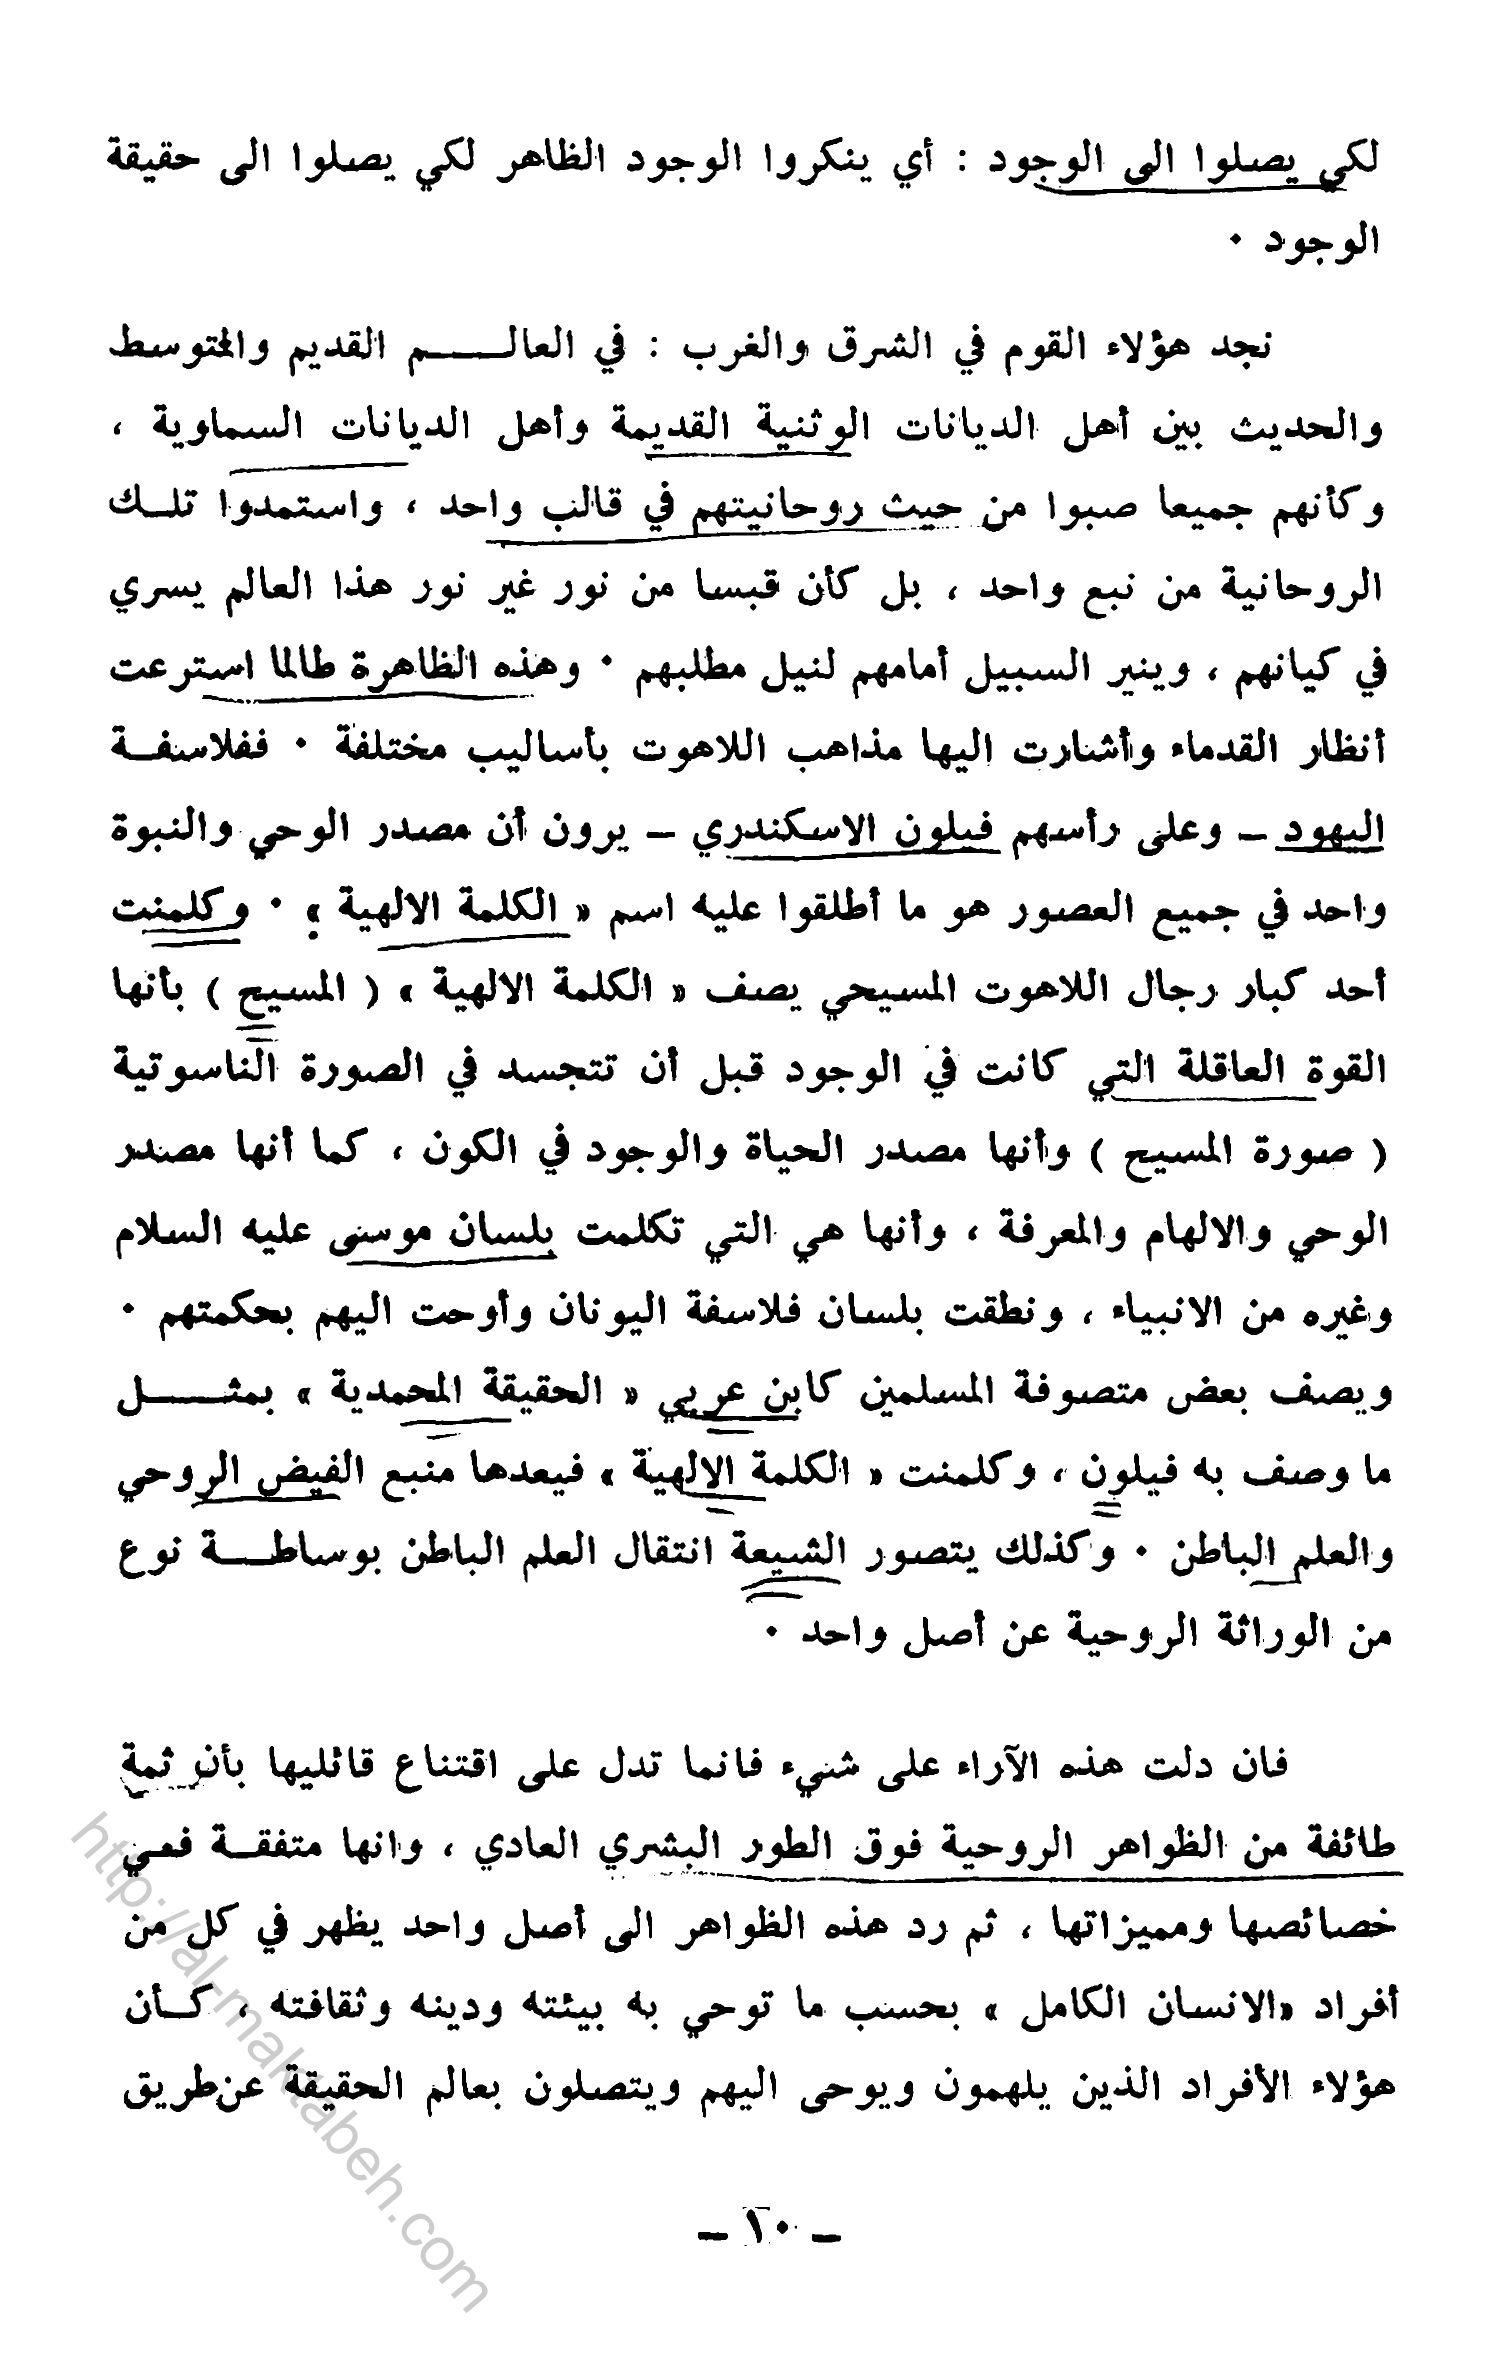 لكي يصلوا الى الوجود : أي ينكروا الوجود الظاهر لكي يصلوا الى حقيقة
الوجود ٠
نجد هؤلاء القوم في الشرق والغرب : في العالـــــم القديم والمتوسط
والحديث بين أهل الديانات الوثنية القديمة وأهل الديانات السماوية ،
وكأنهم جميعا صبوا من حيث روحانيتهم في قالب واحد ، واستمدوا تلـك
الروحانية من نبع واحد ، بل كأن قبسا من نور غير نور هذا العالم يسري
في كيانهم ، وينير السبيل أمامهم لنيل مطلبهم ٠ وهذه الظاهرة طالما استرعت
أنظار القدماء وأشارت اليها مذاهب اللاهوت بأساليب مختلفة ٠ ففلاسفـة
اليهود – وعلى رأسهم فيلون الاسكندري – يرون أن مصدر الوحي والنبوة
واحد في جميع العصور هو ما أطلقوا عليه اسم « الكلمة الالهية » ٠ وكلمنت
أحد كبار رجال اللاهوت المسيحي يصف « الكلمة الالهية » ( المسيح ) بأنها
القوة العاقلة التي كانت في الوجود قبل أن تتجسد في الصورة الناسوتية
( صورة المسيح ) وأنها مصدر الحياة والوجود في الكون ، كما أنها مصدر
الوحي والالهام والمعرفة ، وأنها هي التي تكلمت بلسان موسى عليه السلام
وغيره من الانبياء ، ونطقت بلسان فلاسفة اليونان وأوحت اليهم بحكمتهم ٠
ويصف بعض متصوفة المسلمين كابن عربي « الحقيقة المحمدية » بمثـــــل
ما وصف به فيلون ، وكلمنت « الكلمة الالهية » فيعدها منبع الفيض الروحي
والعلم الباطن ٠ وكذلك يتصور الشيعة انتقال العلم الباطن بوساطـــة نوع
من الوراثة الروحية عن أصل واحد ٠
فان دلت هذه الآراء على شيء فانما تدل على اقتناع قائليها بأن ثمة
طائفة من الظواهر الروحية فوق الطور البشري العادي ، وانها متفقـة فـي
خصائصها ومميزاتها ، ثم رد هذه الظواهر الى أصل واحد يظهر في كل من
أفراد «الانسان الكامل » بحسب ما توحي به بيئته ودينه وثقافته ، كـأن
هؤلاء الأفراد الذين يلهمون ويوحى اليهم ويتصلون بعالم الحقيقة عن طريق
– ١٠ –
http://al-maktabeh.com